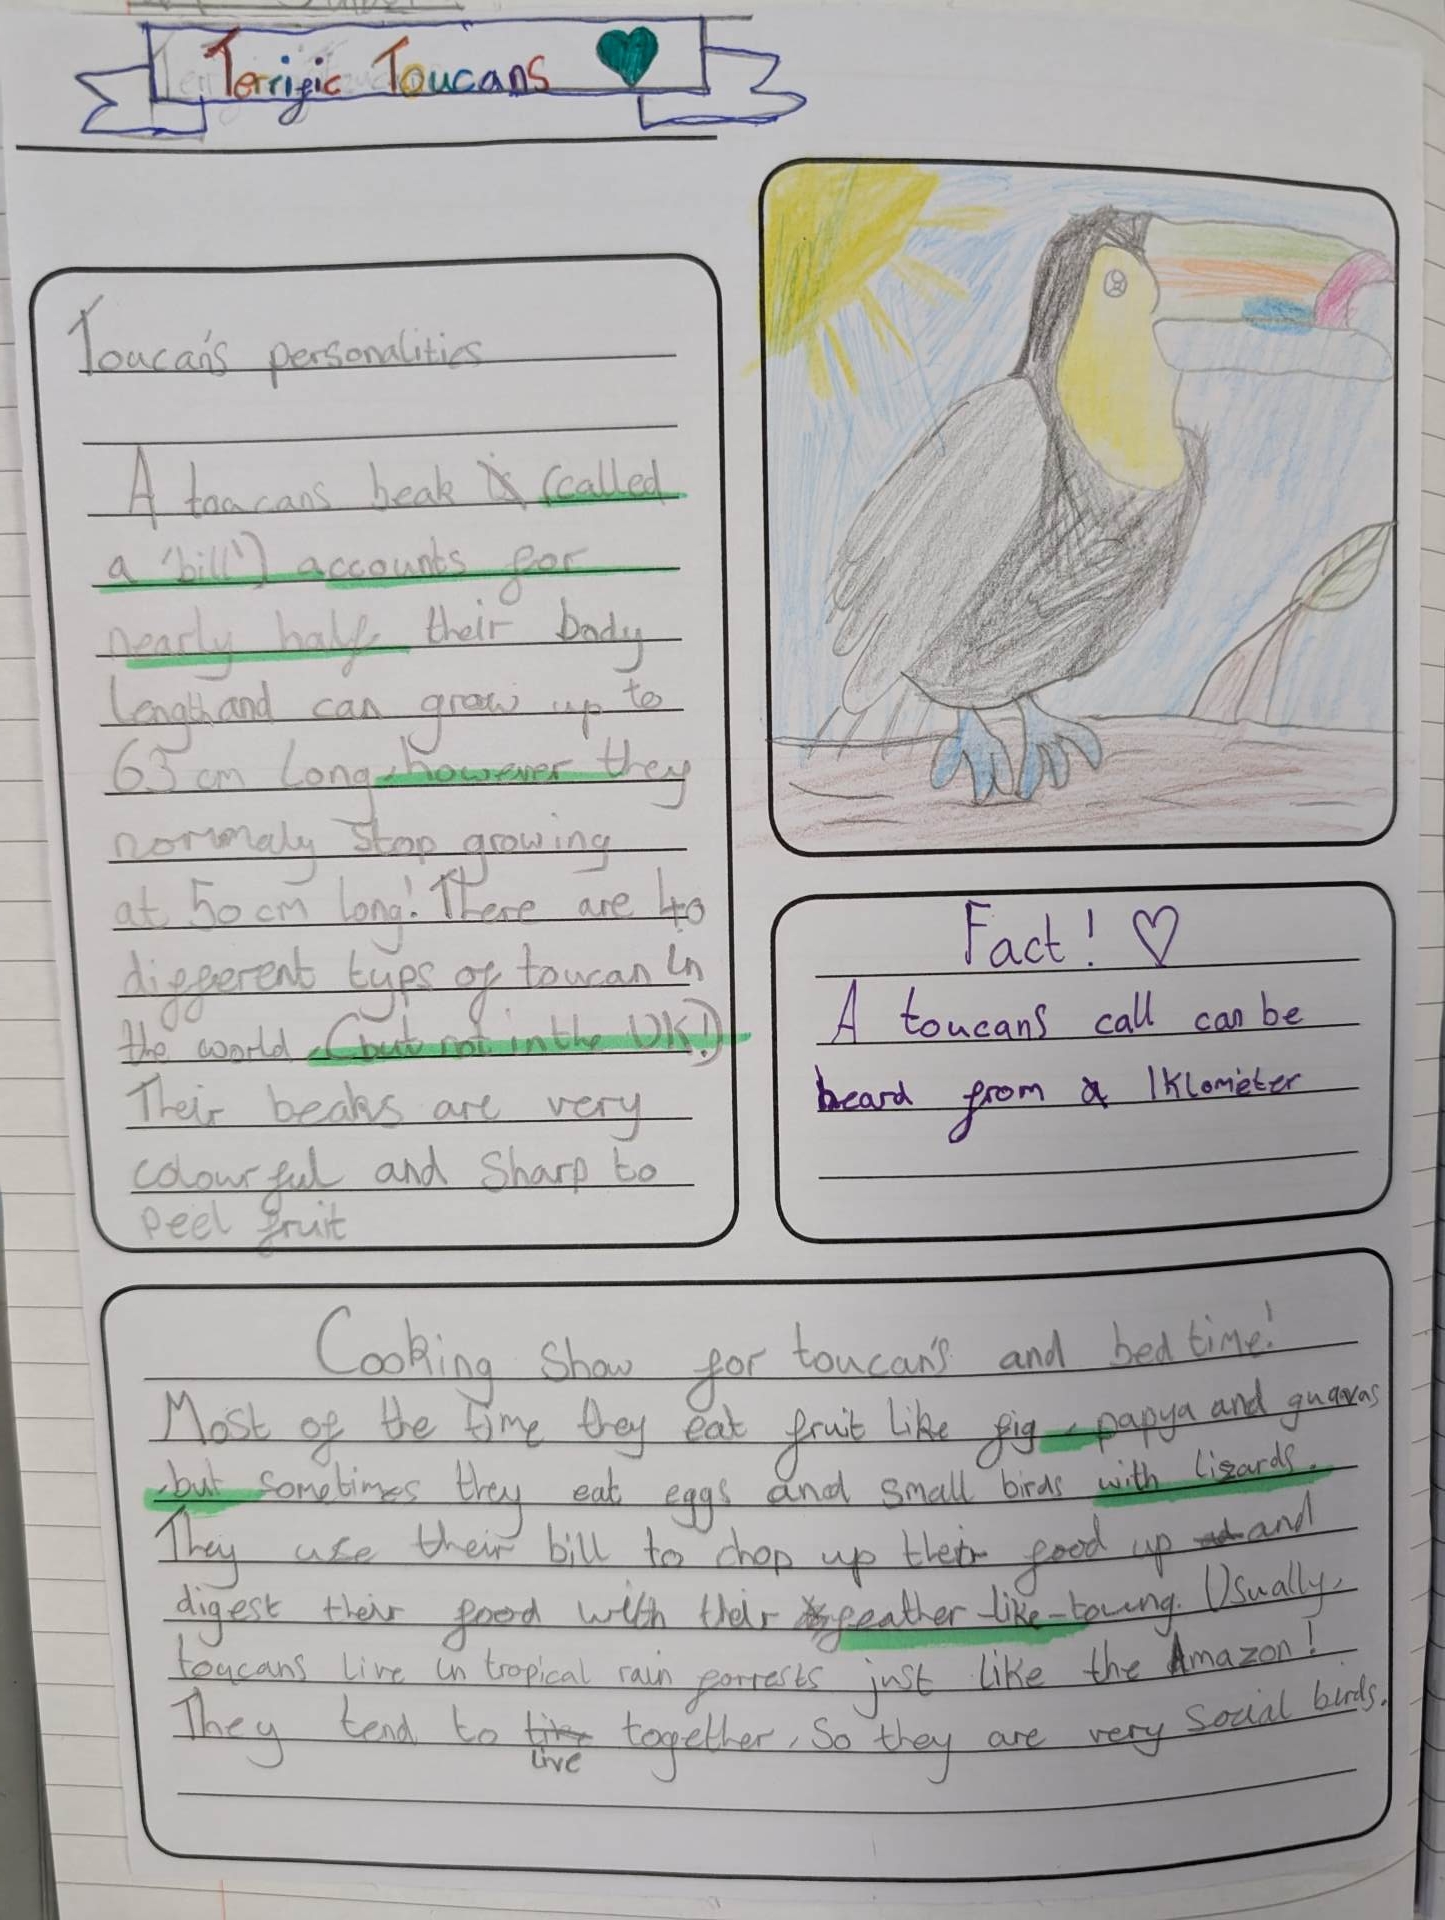 Terrific Toucans
Toucan's personalities
A toucans beak is (called
a 'bill') accounts for
nearly half their body
length and can grow up to
63 cm long, however they
normaly stop growing
at 50 cm long! There are 40
different typs of toucan in
the world (but not in the UK!)
Their beaks are very
colourful and sharp to
peel fruit
Fact!
A toucans call can be
heard from a 1Klometer
Cooking show for toucan's and bedtime!
Most of the time they eat fruit like fig, papya and guavas
, but sometimes they eat eggs and small birds with lizards.
They use their bill to chop up their food up and
digest their food with their feather-like-toung. Usually,
toucans live in tropical rain forrests just like the Amazon!
They tend to live together, so they are very social birds.